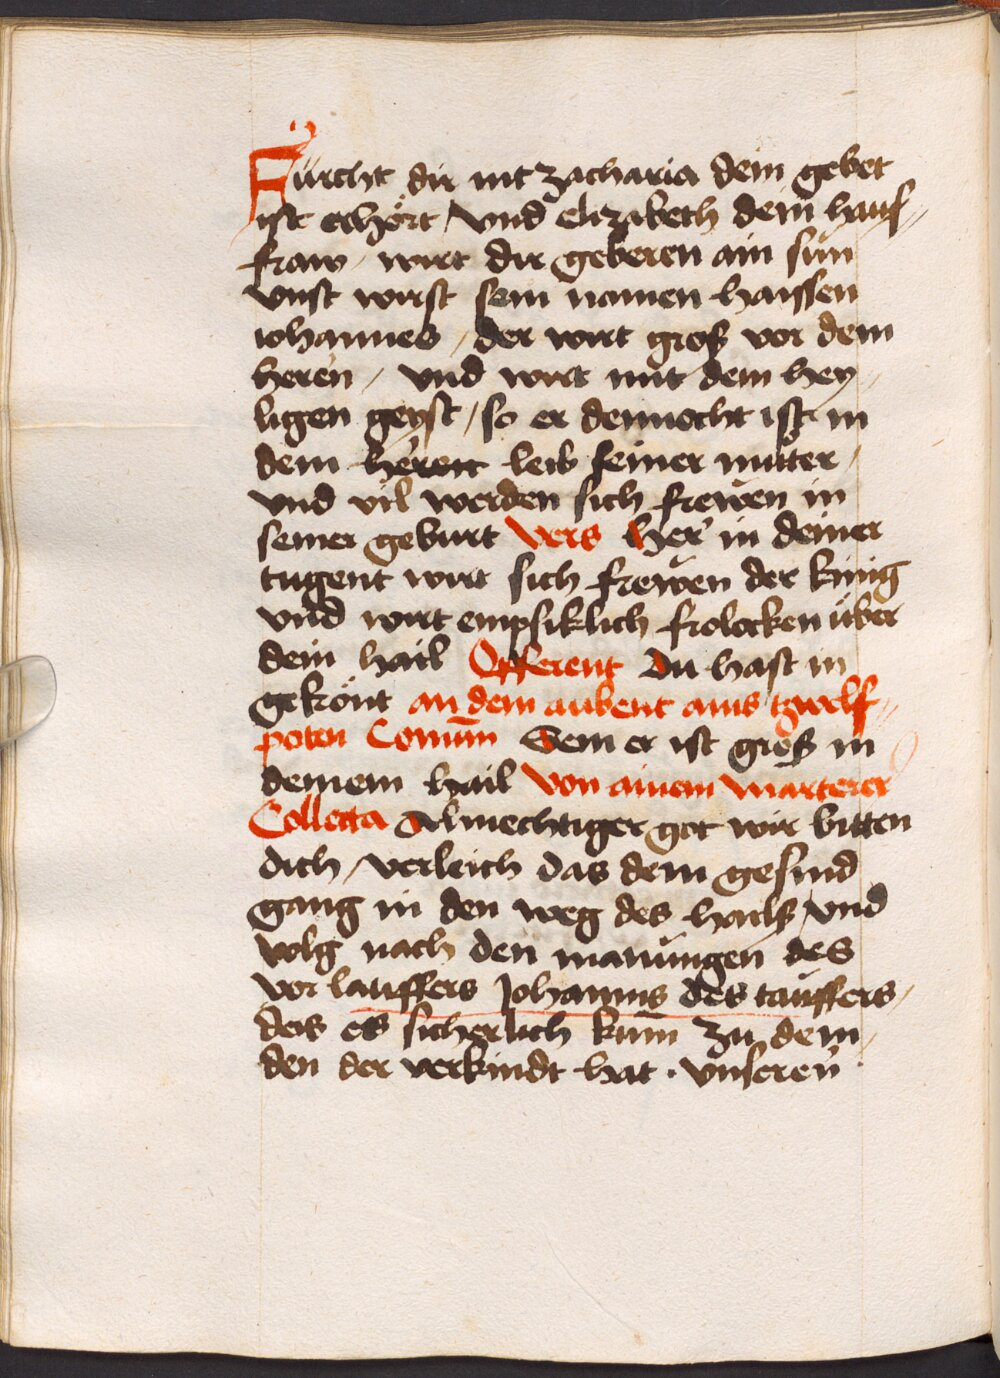 Fürcht dir nit zacharia dein gebet
ist erhört / vnd elizabeth dein hauſ//
fraw / wirt dir geberen ain ſun
vnst wirst ſein namen haiſſen
iohannes / der wirt groß vor dem
heren / vnd wirt mit dem hey/
ligen geyst / ſo er dennocht iſt in
dem heren leib ſeiner müter /
vnd vil werden ſich frewen in
ſeiner geburt vers Her in deiner
tugent wirt ſich frewen der king
vnd wirt empſiklich frolocken über
dein hail Offerent Du hast in
gekrönt an dem aubent ains tzwelf//
poten Comum̄ Sein er ist groß in
deinem hail Von ainem marterer
Collecta Almechtiger got wir bitten
dich / verleich das dein geſind
gang in den weg des hailß / vnd
volg nach den manungen des
vor lauffers Johannis des tauffers /
das es ſicherlich kum zu dem /
den der verkindt hat . vnſeren